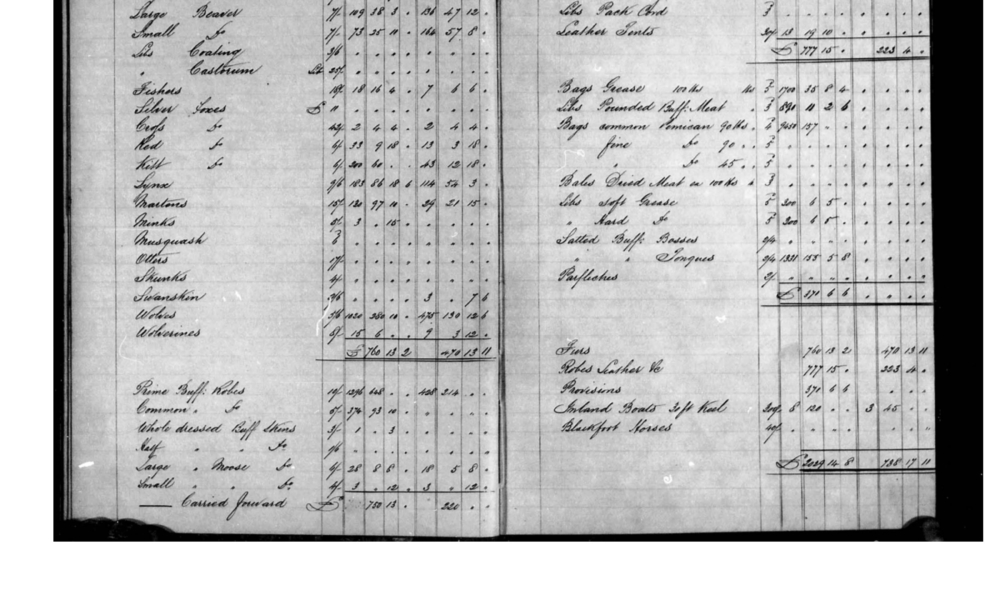 Large Beaver 7/. 109 38 3 . 136 47 12 .
Small do 7/. 73 25 11 . 164 57 8 .
Libs Coating 3/6
" Castorum
Fishers 18 16 4 . 7 6 6 .
Silver Foxes £
Cross do 2 4 4 . 2 4 4 .
Red do 6/. 33 9 18 . 13 3 18
Kitt do 6/. 200 60 . . 43 12 18 .
Lynx 9/6 183 86 18 6 114 54 3 .
Martens 15/. 130 97 10 . 29 21 15 .
Minks 5/. 3 . 15 .
Musquash
Otters
Skunks 4/.
Swanskin 3 . 7 6
Wolves 5/6 1020 280 10 . 475 130 12 6
Wolverines 8/. 15 6 . . 9 3 12 .
£ 760 13 2 470 13 11
Prime Buff: Robes 10/. 1296 648 . . 428 214 . .
Common " do 5/. 374 93 10 .
Whole dressed Buff Skins 3/. 1 . 3 .
Half " " do
Large " Moose do 6/. 28 8 8 . 18 5 8 .
Small " " do 4/. 3 . 12 . 3 . 12 .
Carried forward £ 750 13 . 220 . .
Libs Pack Cord
Leather Tents 30/. 13 19 10 .
£ 777 15 . 223 4 .
Bags Grease 100 lbs 1700 35 8 4
Libs Pounded Buff: Meat 11 2 6
Bags common Pemican 90 lbs . 4 9450 157
fine do 90 . . 5
" do 45 . . 5
Bales Dried Meat ea 100 lbs 3
Libs Soft Grease 5 300 6 5
" Hard do 5 300 6 5
Salted Buff: Bosses
" " Tongues 155 5 8
Parfleches 2/.
£ 371 6 6
Furs 760 13 2 470 13 11
Robes Leather &c 777 15 . 223 4 .
Provisions 371 6 6
Inland Boats 30 ft Keel 8 120 . . 3 45 . .
Blackfoot Horses
£ 2029 14 8 738 17 11